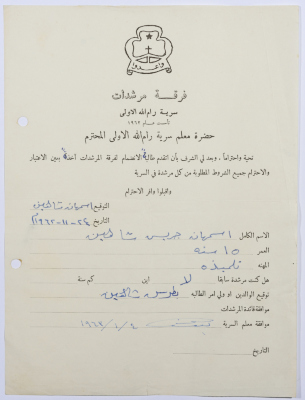 واعدوا
فرقة مرشدات
سرية رام الله الاولى
تأسست عام ١٩٦٢
حضرة معلم سرية رام الله الاولى المحترم
تحية واحتراما، وبعد لي الشرف بأن اتقدم طالبة الانضمام لفرقة المرشدات آخذة بعين الاعتبار
والاحترام جميع الشروط المطلوبة من كل مرشدة في السرية
واقبلوا وافر الاحترام
التوقيع
التاريخ ٢٤-١١-١٩٦٢
الاسم الكامل جريس شاهين
العمر ١٥ سنه
المهنه تلميذه
هل كنت مرشدة سابقا لا اين كم سنة
توقيع الوالدين او ولي امر الطالبه بطرس شاهين
موافقة قائدة المرشدات
موافقة معلم السرية
التاريخ